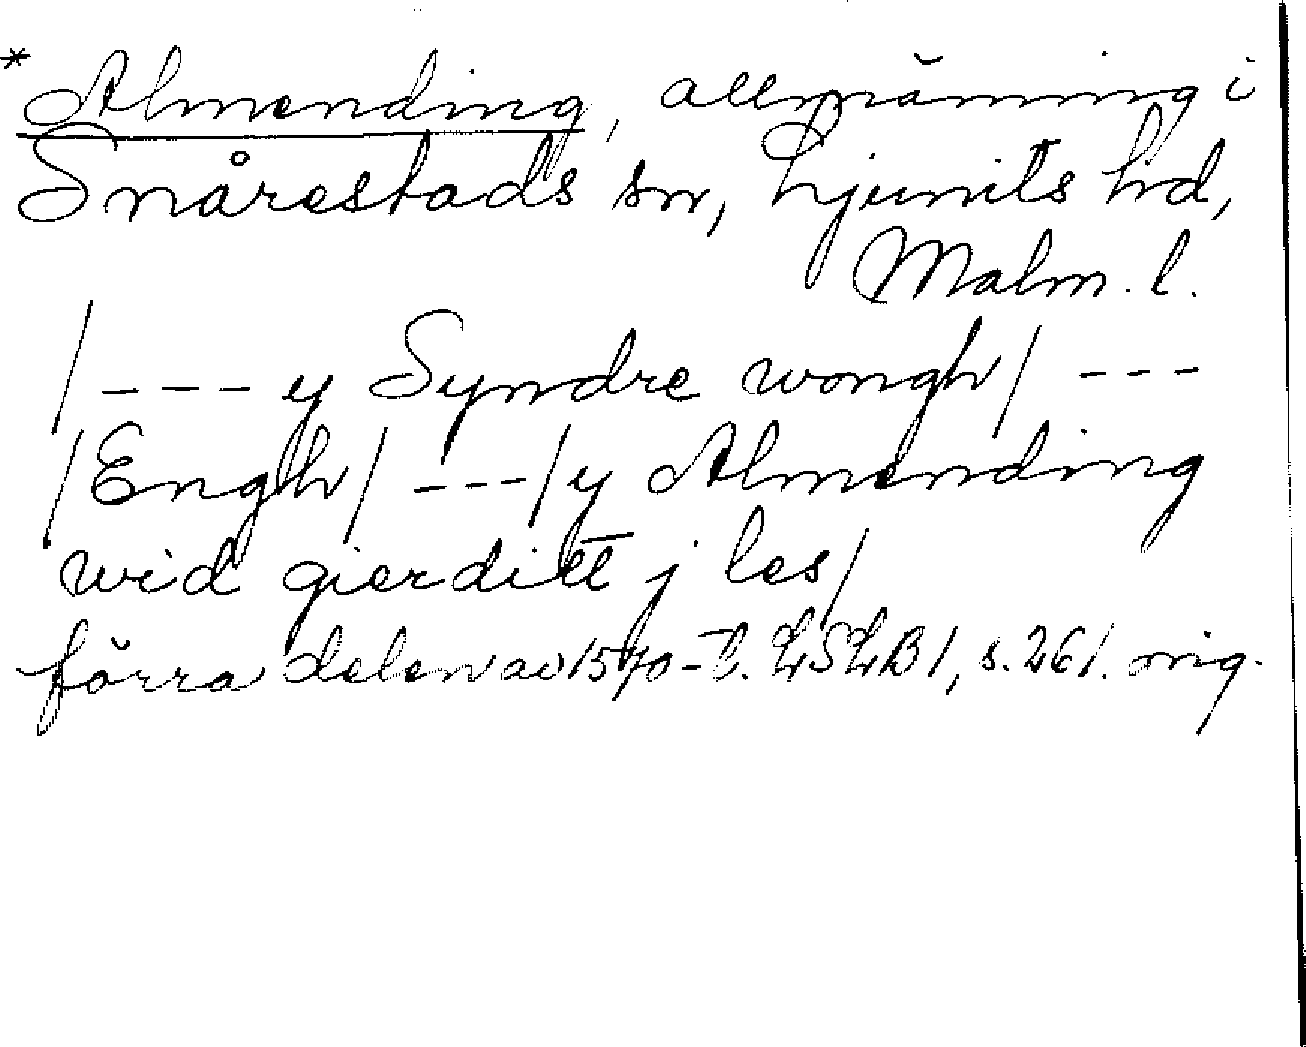 * Almending, allmänning i
Snårestads sn, Ljunits hd,
Malm. l.
/ - - - y Syndre wongh / - - -
/ Engh / - - - / y Almending
wid gierditt j les /
förra delen av 1570-t. LSLB 1, s. 261. orig.